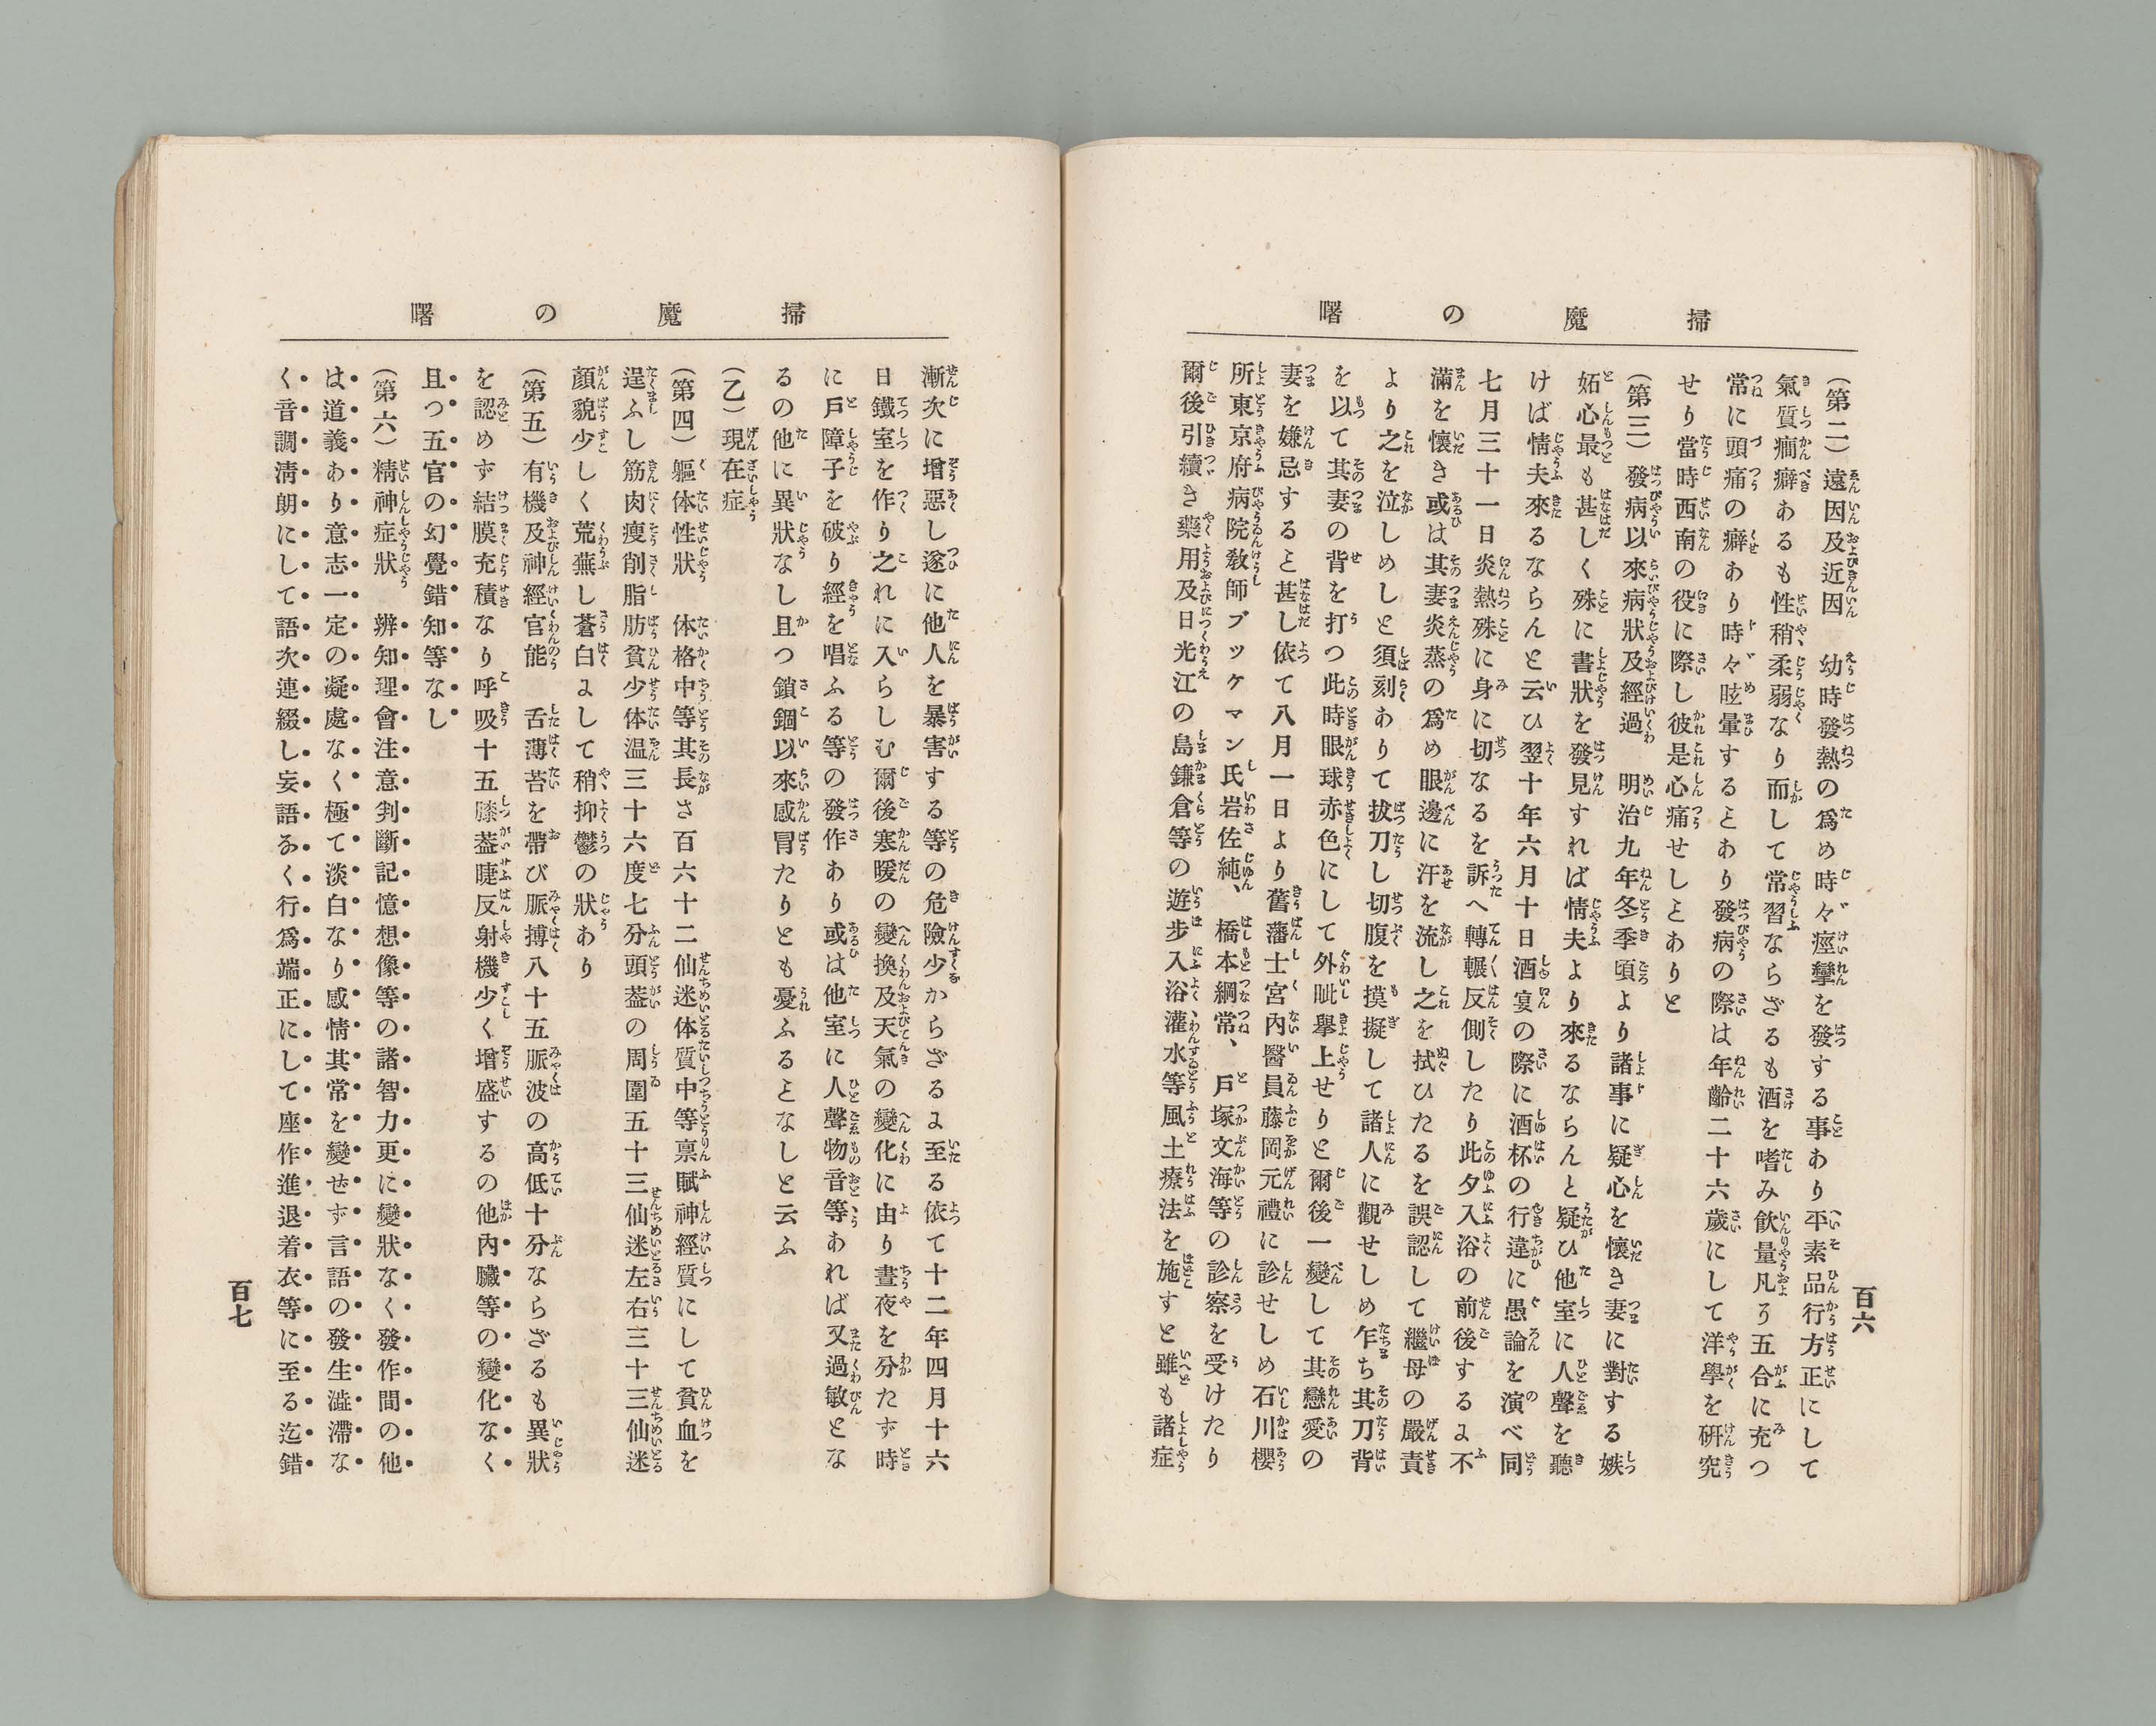 掃魔の曙
(第二)遠因及近因　幼時發熱の爲め時々痙攣を發する事あり平素品行方正にして
氣質癇癖あるも性稍、柔弱なり而して常習ならざるも酒を嗜み飮量凡り五合に充つ
常に頭痛の癖あり時々眩暈するとあり發病の際は年齡二十六歲にして洋學を硏究
せり當時西南の役に際し彼是心痛せしとありと
(第三)發病以來病狀及經過　明治九年冬季頃より諸事に疑心を懷き妻に對する嫉
妬心最も甚しく殊に書狀を發見すれば情夫より來るならんと疑ひ他室に人聲を聽
けば情夫來るならんと云ひ翌十年六月十日酒宴の際に酒杯の行違に愚論を演べ同
七月三十一日炎熱殊に身に切なるを訴へ轉輾反側したり此夕入浴の前後するよ不
滿を懷き或は其妻炎蒸の爲め眼邊に汗を流し之を拭ひたるを誤認して繼母の嚴責
より之を泣しめしと須刻ありて拔刀し切腹を摸擬して諸人に觀せしめ乍ち其刀背
を以て其妻の背を打つ此時眼球赤色にして外眦擧上せりと爾後一變して其戀愛の
妻を嫌忌すると甚し依て八月一日より舊藩士宮內醫員藤岡元禮に診せしめ石川櫻
所東京府病院敎師ブッケマン氏岩佐純、橋本綱常、戸塚文海等の診察を受けたり
爾後引續き藥用及日光江の島鎌倉等の遊步入浴、灌水等風土療法を施すと雖も諸症
百六
掃魔の曙
漸次に增惡し遂に他人を暴害する等の危險少からざるよ至る依て十二年四月十六
日鐵室を作り之れに入らしむ爾後寒暖の變換及天氣の變化に由り晝夜を分たず時
に戸障子を破り經を唱ふる等の發作あり或は他室に人聲物音等、あれば又過敏とな
るの他に異狀なし且つ鎖錮以來感冒たりとも憂ふるとなしと云ふ
(乙)現在症
(第四)軀体性狀　体格中等其長さ百六十二仙迷体質中等禀賦神經質にして貧血を
逞ふし筋肉瘦削脂肪貧少体温三十六度七分頭葢の周圍五十三仙迷左右三十三仙迷
顏貌少しく荒蕪し蒼白よして稍、抑鬱の狀あり
(第五)有機及神經官能　舌薄苔を帶び脈搏八十五脈波の高低十分ならざるも異狀
を認めず結膜充積なり呼吸十五膝葢䐿反射機少く增盛するの他內臟等の變化なく
且つ五官の幻覺錯知等なし
(第六)精神症狀　辨知理會注意判斷記憶想像等の諸智力更に變狀なく發作間の他
は道義あり意志一定の凝處なく極て淡白なり感情其常を變せず言語の發生澁滯な
く音調淸朗にして語次連綴し妄語るく行爲端正にして座作進退着衣等に至る迄錯
百七